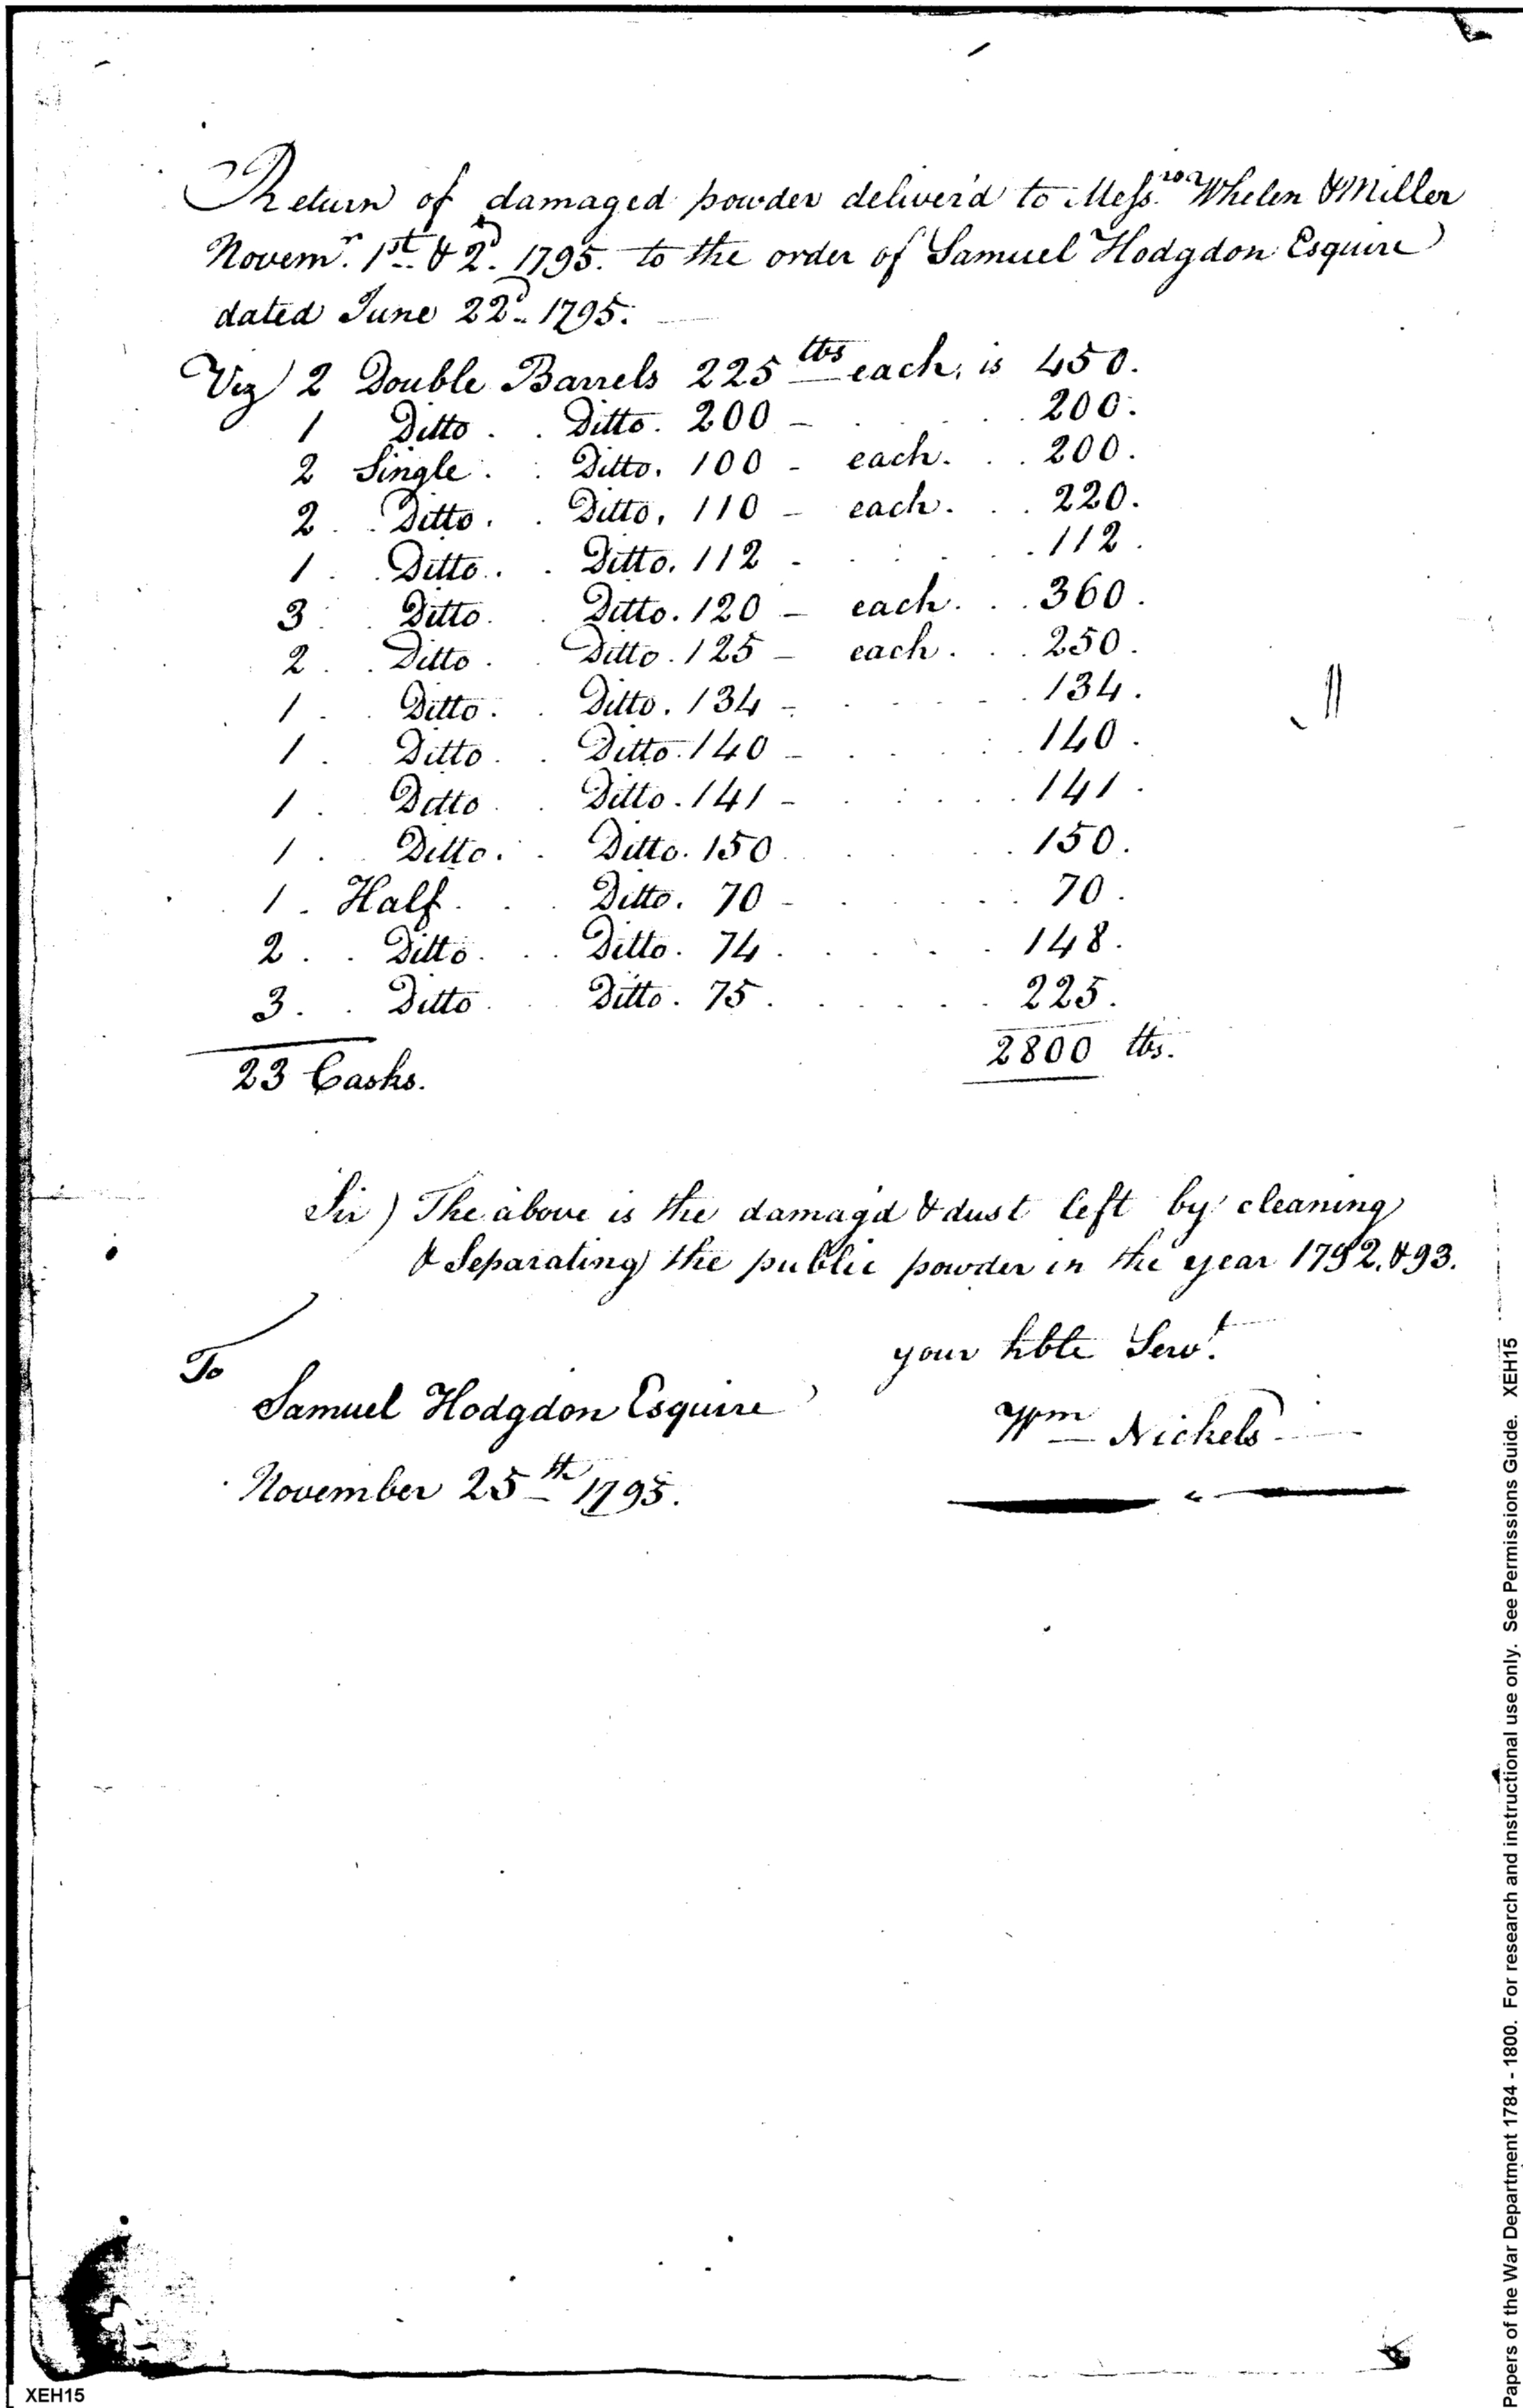 Return of damaged powder deliver'd to Mess.rs Whelen & Miller
Novem.r 1st & 2d. 1795. to the order of Samuel Hodgdon Esquire
dated June 22d. 1795.
Viz 2 Double Barrels 225 lbs each, is 450.
1 Ditto . . Ditto. 200 - . . . 200.
2 Single . . Ditto. 100 - each. . . 200.
2 . . Ditto. . Ditto. 110 - each. . . 220.
1 . . Ditto. . Ditto. 112 - . . . . 112.
3 . . Ditto. . Ditto. 120 - each. . . 360.
2 . . Ditto . . Ditto. 125 - each. . . 250.
1 . . Ditto. . Ditto. 134 - . . . . 134.
1 . Ditto. . Ditto. 140 - . . . . 140.
1 . . Ditto . . Ditto. 141 - . . . . 141.
1 . . Ditto. . Ditto. 150 . . . . 150.
1 . Half . . . Ditto. 70 - . . . . 70.
2 . . Ditto. . . Ditto. 74 . . . . . 148.
3. . Ditto . . Ditto. 75 . . . . . 225.
23 Casks. 2800 lbs.
Sir) The above is the damag'd & dust left by cleaning
& Separating the public powder in the year 1792. & 93.
your hble Servt.
To
Samuel Hodgdon Esquire
Wm Nickels
November 25th 1795.
XEH15
Papers of the War Department 1784 - 1800. For research and instructional use only. See Permissions Guide. XEH15